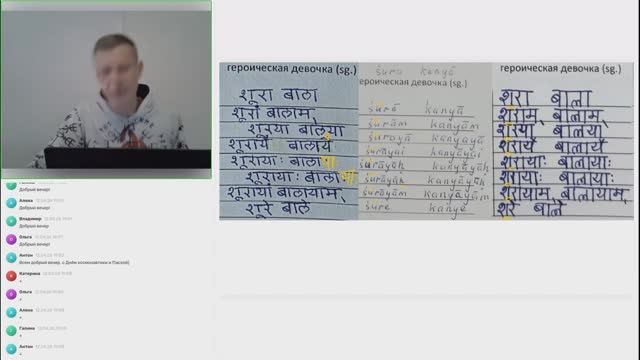 героическая девочка (sg.)
शूरा बाला
शूरां बालाम्
शूरया बालया
शूरायै बालायै
शूरायाः बाला
शूरायाः बाला
शूरायां बालायाम्
शूरे बाले
śura kanyā
героическая девочка (sg.)
śurā kanyā
śurām kanyām
śurayā kanyayā
śurāyai kanyāyai
śurāyāḥ kanyāyāḥ
śurāyāḥ kanyāyāḥ
śurāyām kanyāyām
śure kanye
героическая девочка (sg.)
शरा बाला
शराम् बालाम्
शरया बालया
शरायै बालायै
शरायाः बालायाः
शरायाः बालायाः
शरायाम् बालायाम्
शरे बाले
Добрый вечер!
Алина
Добрый вечер!
Владимир
Добрый вечер
Ольга
Добрый вечер!
Антон
Всем добрый вечер, с Днём космонавтики и Пасхой)
Катерина
+
Ольга
+
Алина
+
Галина
+
Антон
+